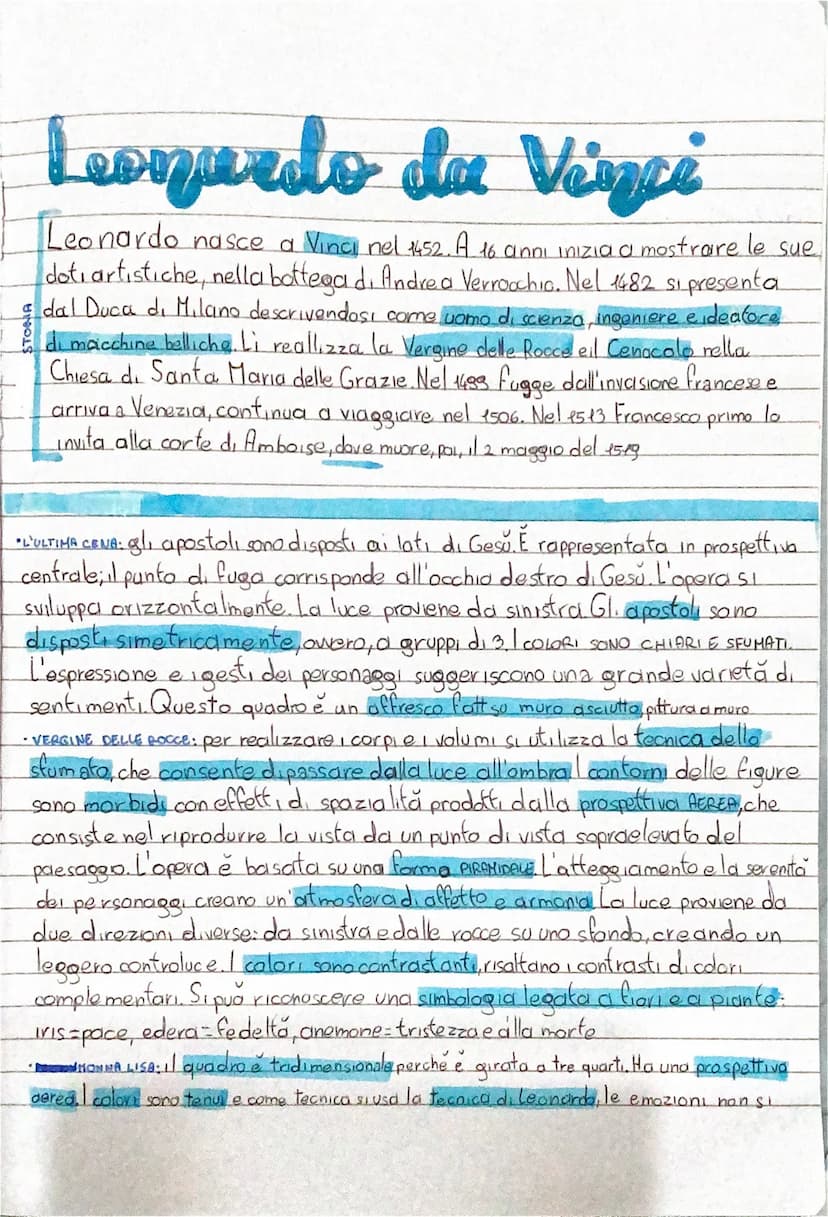 Leonardo da Vinci
STORIA
Leonardo nasce a Vinci nel 1452. A 16 anni inizia a mostrare le sue
doti artistiche, nella bottega di Andrea Verrocchio. Nel 1482 si presenta
dal Duca di Milano descrivendosi come uomo di scienza, ingeniere e ideatore
di macchine belliche. Li reallizza la Vergine delle Rocce e il Cenocolo nella
Chiesa di Santa Maria delle Grazie. Nel 1499 fugge dall'invasione francese e
arriva a Venezia, continua a viaggiare nel 1506. Nel 1513 Francesco primo lo
invita alla corte di Amboise, dove muore, poi, il 2 maggio del 1519
•L'ULTIMA CENA: gli apostoli sono disposti ai lati di Gesŭ. Ĕ rappresentata in prospettiva
centrale; il punto di fuga corrisponde all'occhio destro di Gesŭ. L'opera si
sviluppa orizzontalmente. La luce proviene da sinistra. Gli apostoli sono
disposti simetricamente, ovvero, a gruppi di 3. I COLORI SONO CHIARI E SFUMATI.
L'espressione e i gesti dei personaggi suggeriscono una grande varietă di
sentimenti. Questo quadro ĕ un affresco fatt so muro asciutto, pittura a muro
• VERGINE DELLE ROCCE: per realizzare i corpi e i volumi si utilizza la tecnica dello
sfumato, che consente di passare dalla luce all'ombra. I contorni delle figure
sono morbidi con effetti di spazialită prodotti dalla prospettiva AEREA, che
consiste nel riprodurre la vista da un punto di vista sopraelevato del
paesaggio. L'opera ĕ basata su una forma PIRAMIDALE. L'atteggiamento e la serenită
dei personaggi creano un'atmosfera di affetto e armonia. La luce proviene da
due direzioni diverse: da sinistra e dalle rocce su uno sfondo, creando un
leggero controluce. I colori sono contrastanti, risaltano i contrasti di colori
complementari. Si può riconoscere una simbologia legata a fiori e a piante:
iris=pace, edera=fedeltă, anemone=tristezza e alla morte
• MONNA LISA: il quadro ĕ tridimensionale perché ĕ girata a tre quarti. Ha una prospettiva
aerea. I colori sono tenui e come tecnica si usa la tecnica di Leonardo, le emozioni non si